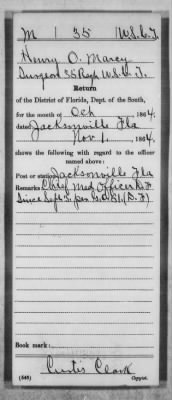 M | 35 | U.S.C.T.
Henry O. Marcy
Surgeon 35 Regt U.S.C.T.
Return
of the District of Florida, Dept. of the South,
for the month of Oct, 1864,
dated Jacksonville Fla
Nov 1, 1864,
shows the following with regard to the officer
named above:
Post or station Jacksonville Fla
Remarks Chief Med Officer D.F.
Since Sept 5, per G.O. 31, (D.F)
Book mark:
Curtis Clark
(648) Copyist.